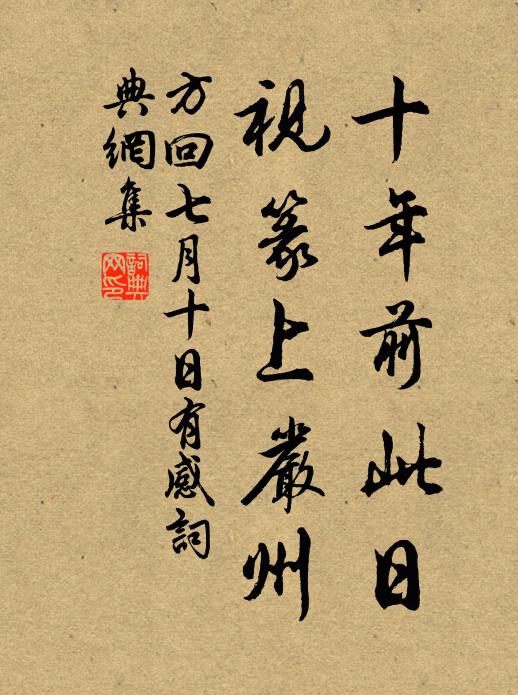 十年前此日
視篆上嚴州
方回七月十日有感詞
典網集
詞典網印